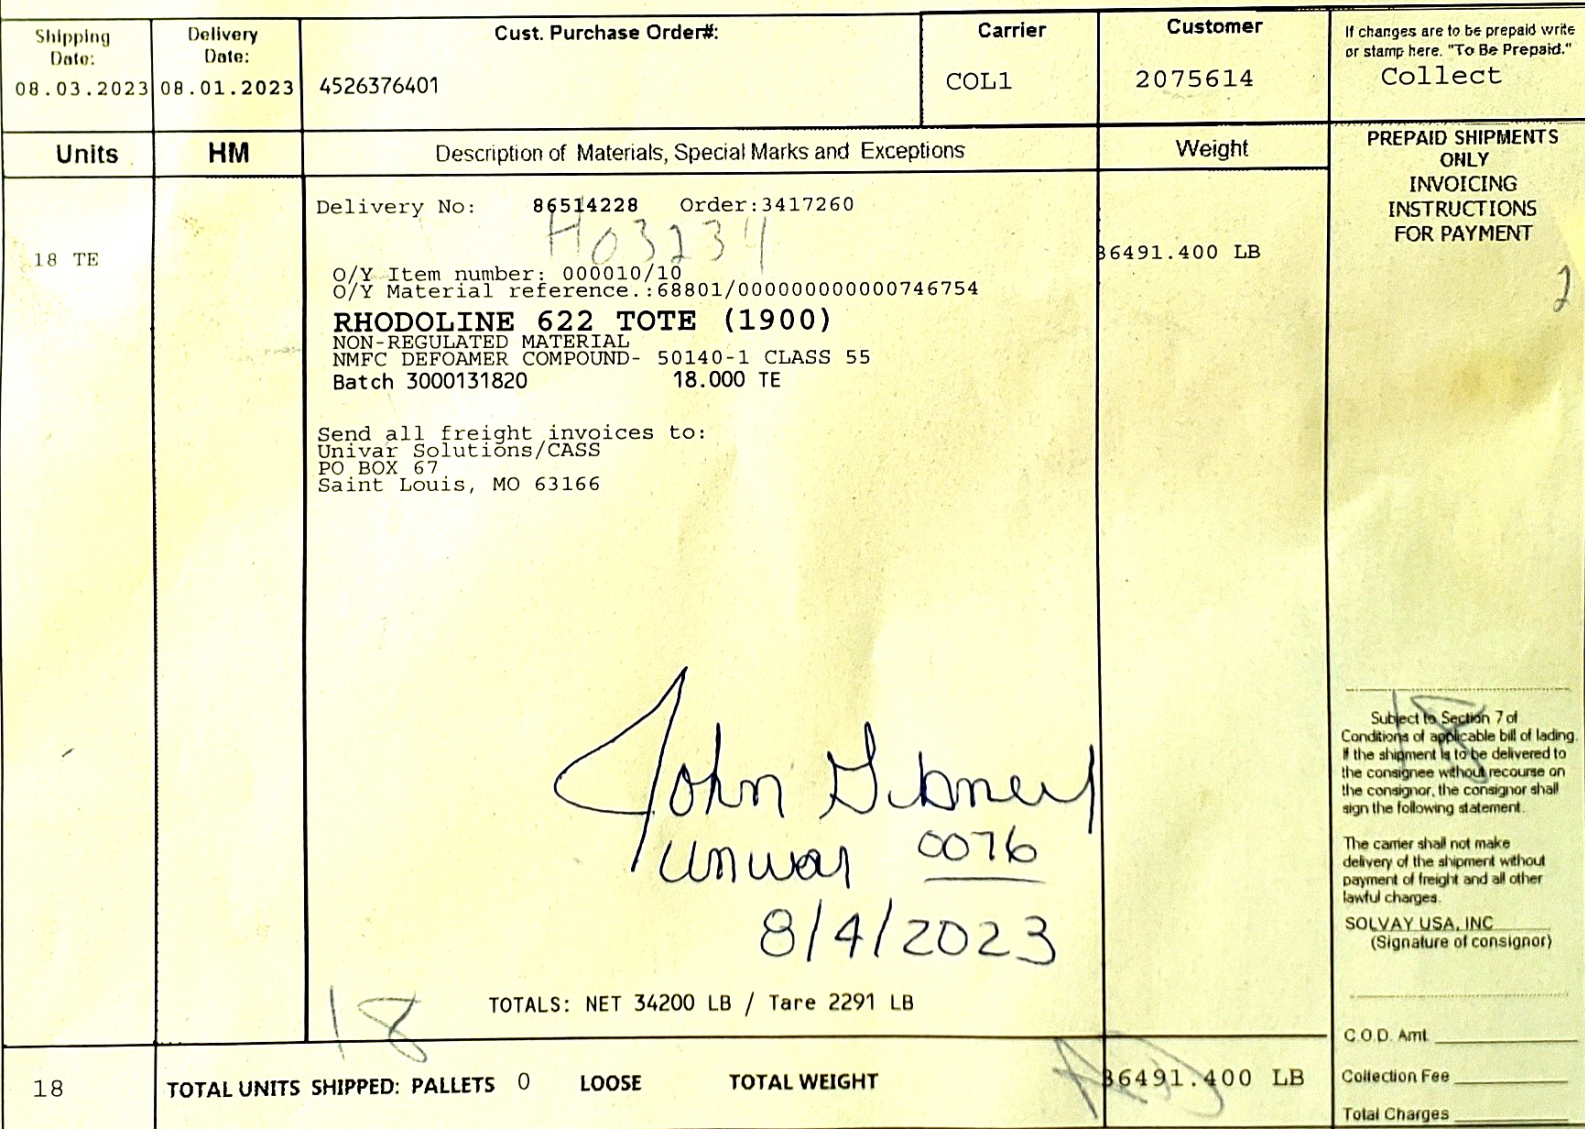 Shipping Date:
Delivery Date:
Cust. Purchase Order#:
Carrier
Customer
If changes are to be prepaid write
or stamp here. "To Be Prepaid."
08.03.2023
08.01.2023
4526376401
COL1
2075614
Collect
Units
HM
Description of Materials, Special Marks and Exceptions
Weight
PREPAID SHIPMENTS
ONLY
INVOICING
INSTRUCTIONS
FOR PAYMENT
2
Delivery No: 86514228 Order:3417260
H03234
18 TE
36491.400 LB
O/Y Item number: 000010/10
O/Y Material reference.:68801/000000000000746754
RHODOLINE 622 TOTE (1900)
NON-REGULATED MATERIAL
NMFC DEFOAMER COMPOUND- 50140-1 CLASS 55
Batch 3000131820 18.000 TE
Send all freight invoices to:
Univar Solutions/CASS
PO BOX 67
Saint Louis, MO 63166
John Gibney
Univar 0076
8/4/2023
18
TOTALS: NET 34200 LB / Tare 2291 LB
18
Subject to Section 7 of
Conditions of applicable bill of lading.
If the shipment is to be delivered to
the consignee without recourse on
the consignor, the consignor shall
sign the following statement.
The carrier shall not make
delivery of the shipment without
payment of freight and all other
lawful charges.
SOLVAY USA, INC
(Signature of consignor)
C.O.D. Amt.
Collection Fee
Total Charges
18
TOTAL UNITS SHIPPED: PALLETS 0 LOOSE TOTAL WEIGHT
36491.400 LB